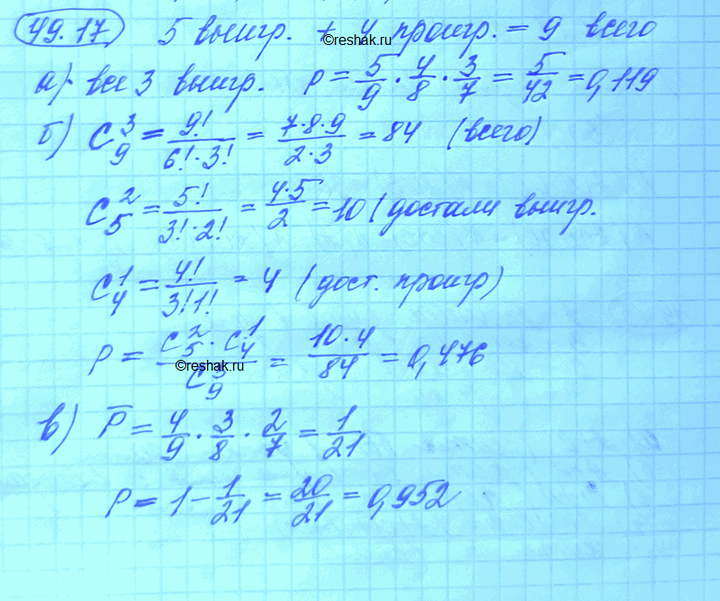 49.17 5 выигр. + 4 проигр. = 9 всего
©reshak.ru
а) все 3 выигр. P = 5/9 · 4/8 · 3/7 = 5/42 = 0,119
б) C₉³ = 9!/(6!·3!) = (7·8·9)/(2·3) = 84 (всего)
C₅² = 5!/(3!·2!) = (4·5)/2 = 10 (достали выигр.
C₄¹ = 4!/(3!1!) = 4 (дост. проигр)
P = (C₅² · C₄¹)/C₉³ = (10·4)/84 = 0,476
©reshak.ru
в) P̅ = 4/9 · 3/8 · 2/7 = 1/21
P = 1 - 1/21 = 20/21 = 0,952